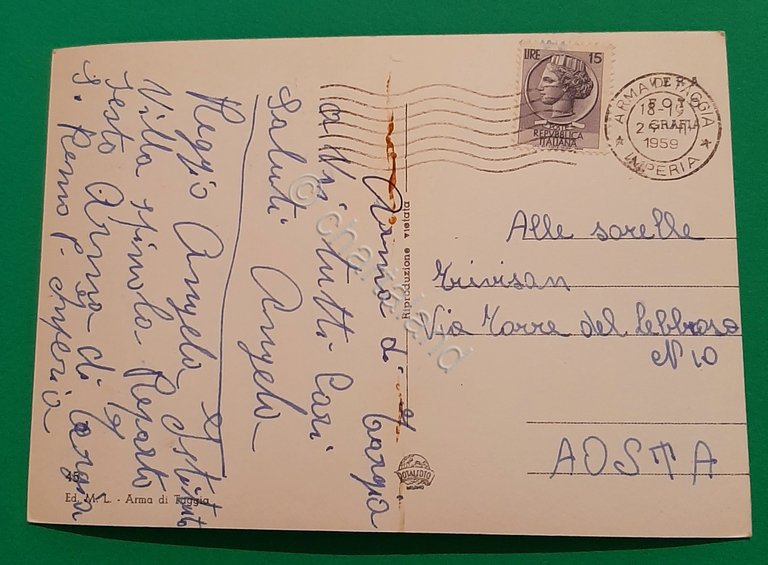 Arma di Taggia
a Voi tutti Cari
Saluti Angela
Reggio Angela
Villa Spinola Reparto
sesto Arma di Taggia
S. Remo P. Imperia
LIRE 15
POSTE
REPUBBLICA
ITALIANA
ARMA DI TAGGIA
18-19
1959
IMPERIA
Riproduzione vietata
Alle sorelle
Trivisan
Via Torre del lebbroso
N 10
AOSTA
ROTALFOTO
MILANO
45
Ed. M. L. - Arma di Taggia
© charta land